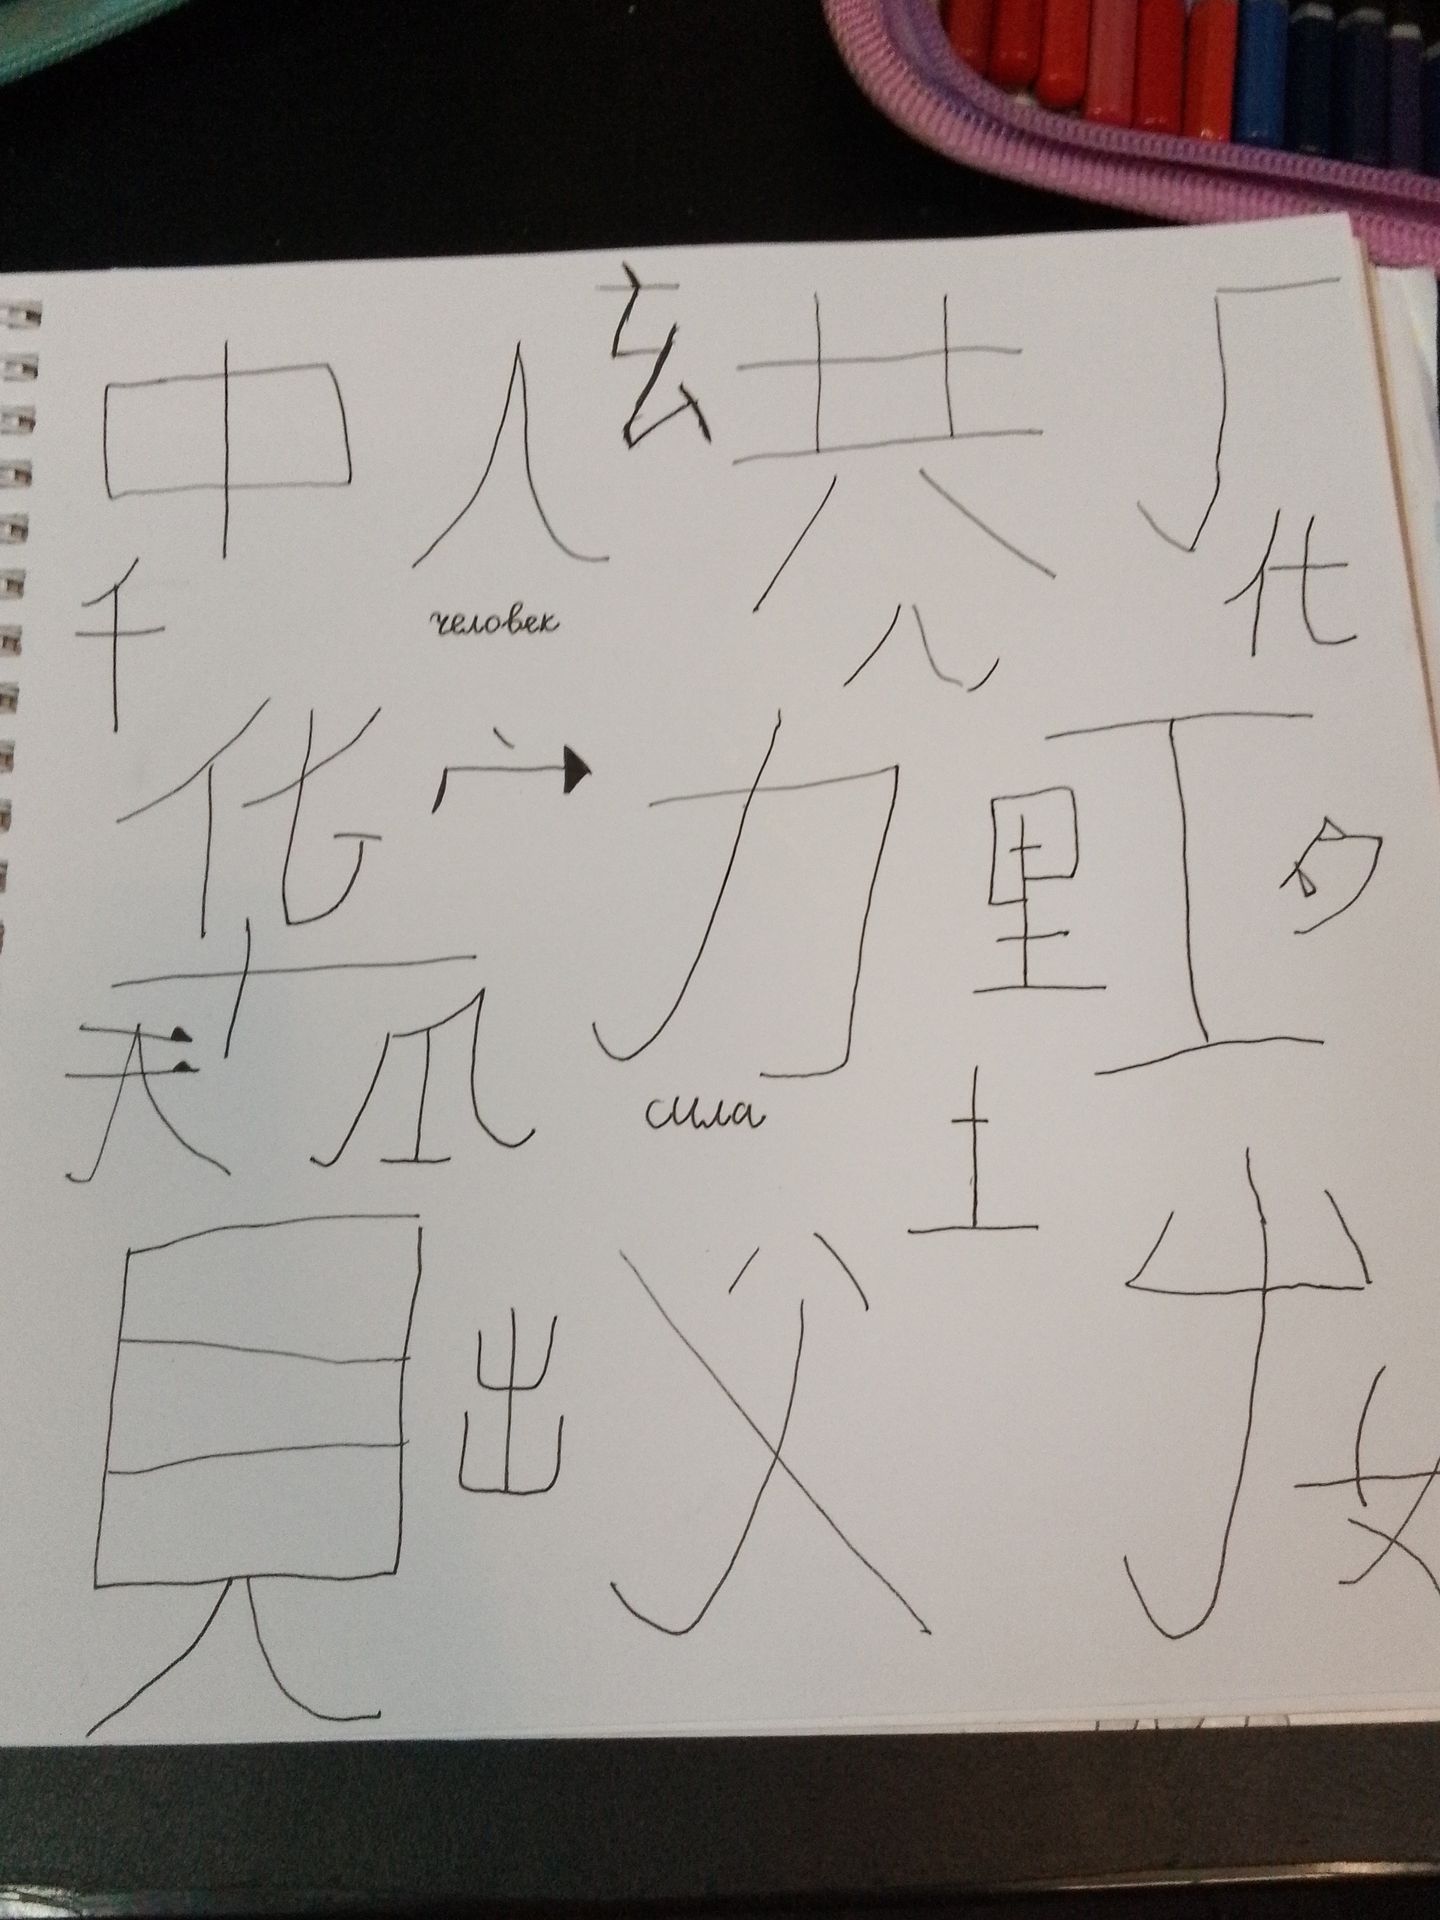 中 人 玄 共 厂
千 человек 八 代
化 宀 力 里 工
十
天 爪 сила 土
見 出 父 女